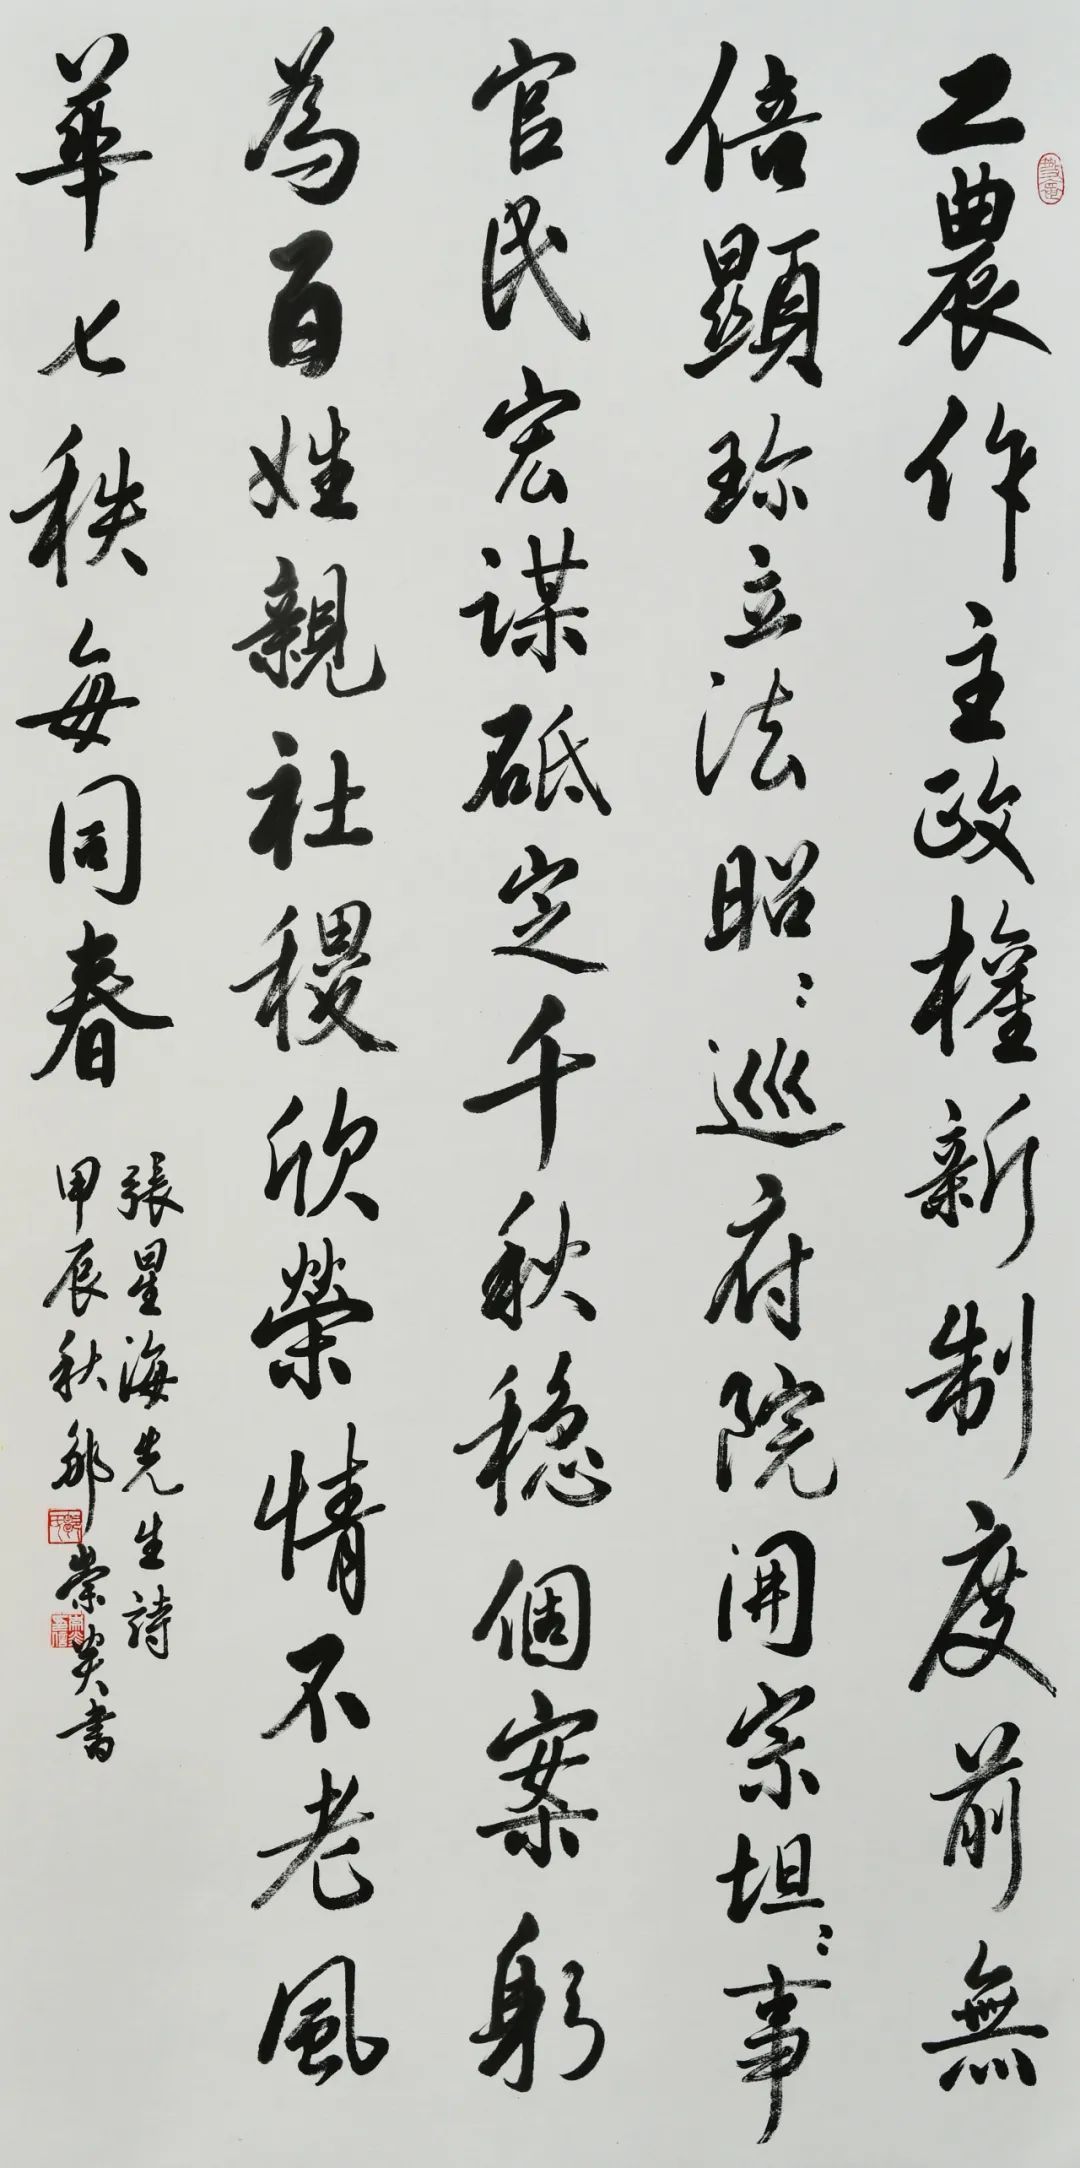 工農作主政權新制度前無
倍顯珎立法昭〻巡府院開宗坦〻事
官民宏謀砥定千秋稳個案躬
為百姓親社稷欣榮情不老風
華七秩每同春
張星海先生詩
甲辰秋 崇 書